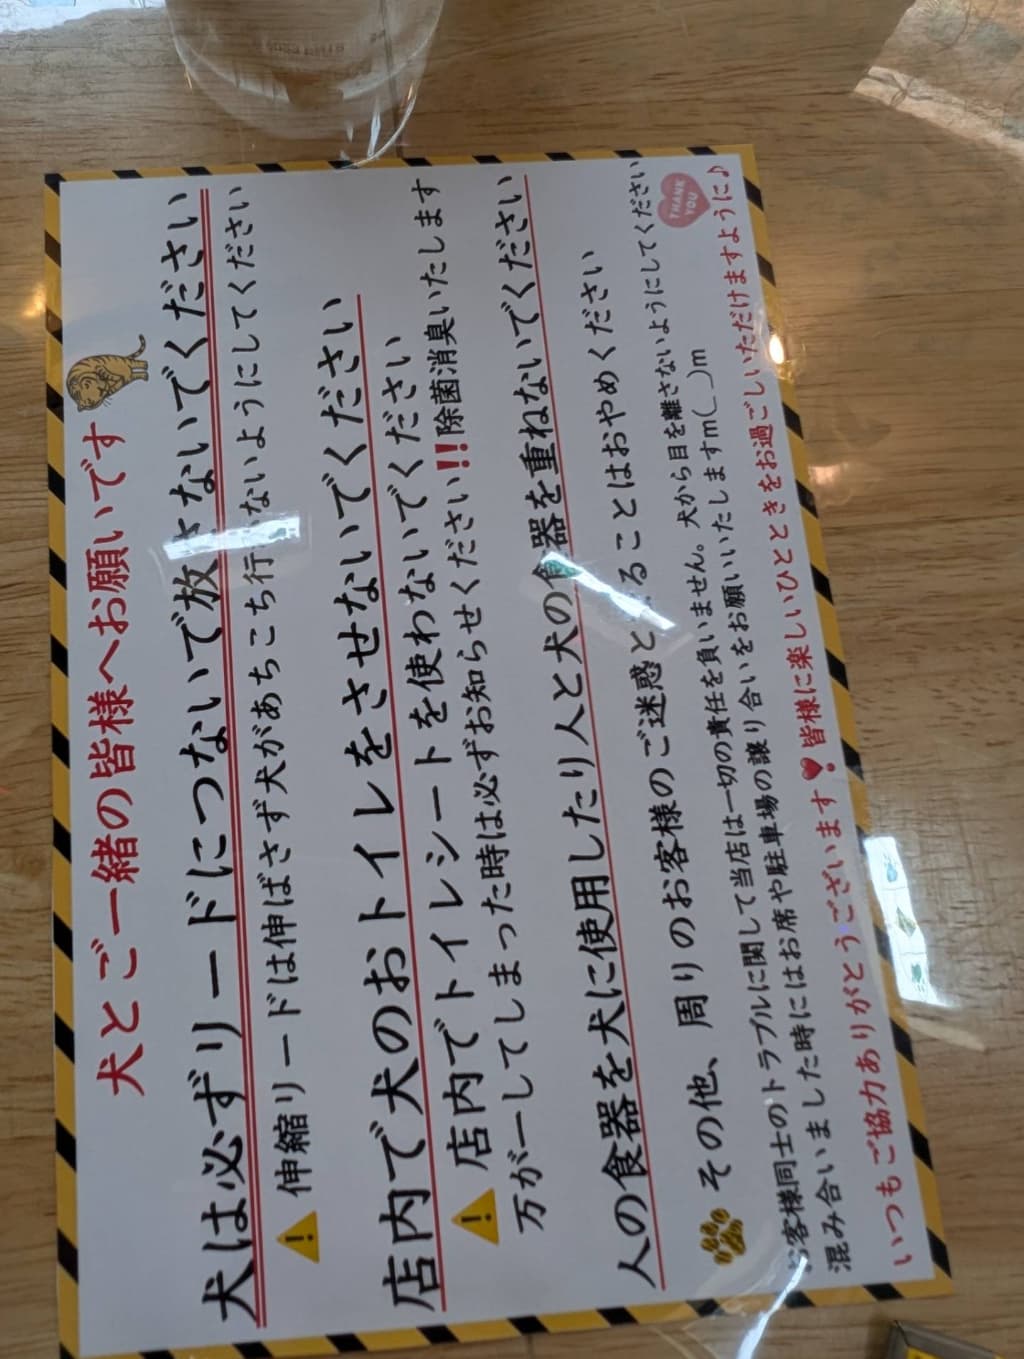 犬とご一緒の皆様へお願いです
犬は必ずリードにつないで放さないでください
伸縮リードは伸ばさず犬があちこち行かないようにしてください
店内で犬のおトイレをさせないでください
店内でトイレシートを使わないでください
万が一してしまった時は必ずお知らせください!!除菌消臭いたします
人の食器を犬に使用したり人と犬の食器を重ねないでください
その他、周りのお客様のご迷惑となることはおやめください
お客様同士のトラブルに関して当店は一切の責任を負いません。犬から目を離さないようにしてください
混み合いました時にはお席や駐車場の譲り合いをお願いいたしますm(_ _)m
THANK YOU
いつもご協力ありがとうございます❣皆様に楽しいひとときをお過ごしいただけますように♪